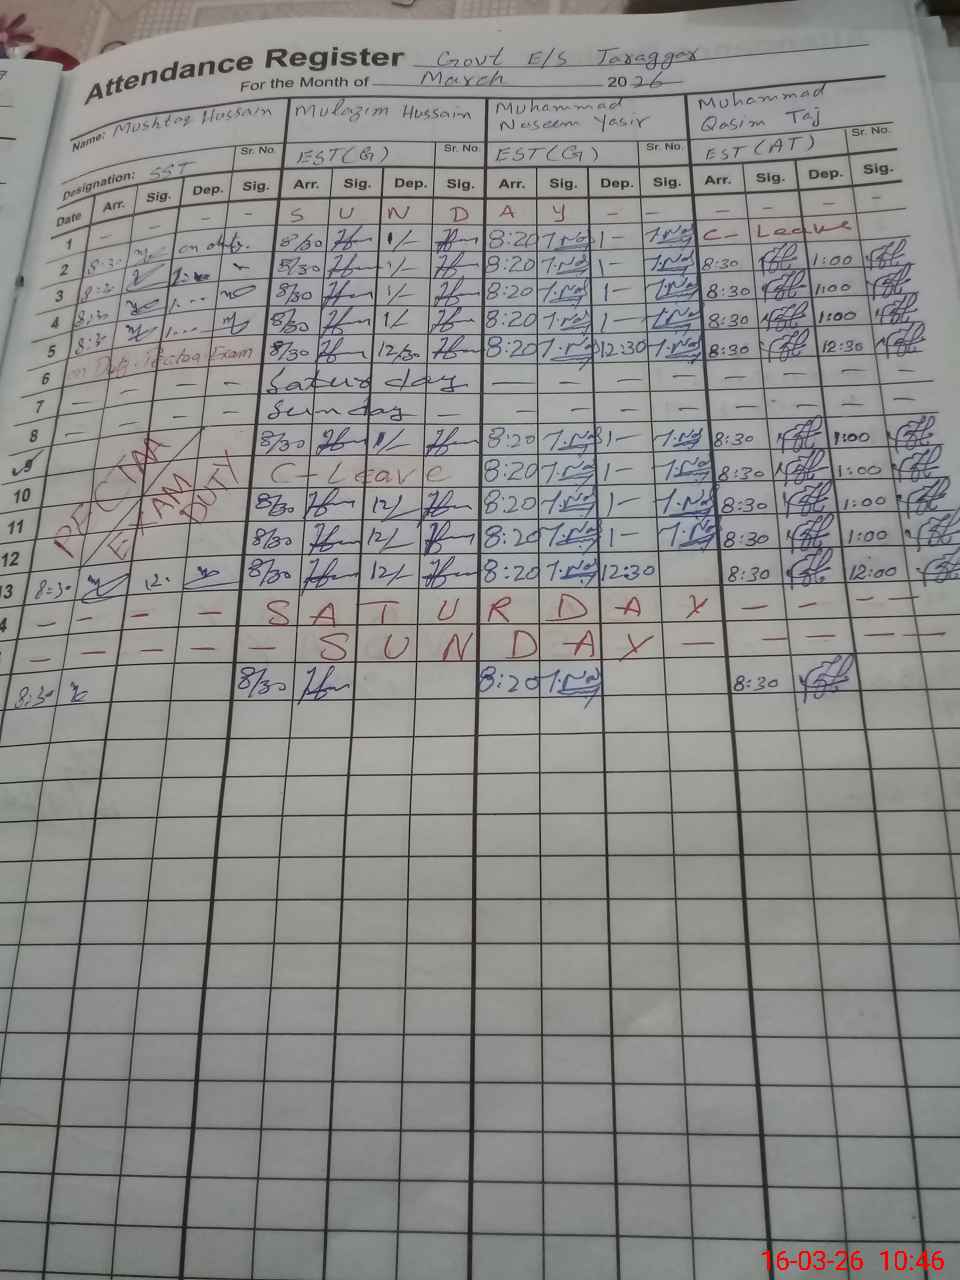 Attendance Register Govt E/S Taraggar
For the Month of March 2026
Name: Mushtaq Hussain Mulazim Hussain Muhammad Naseem Yasir Muhammad Qasim Taj
Designation: SST Sr. No. EST (G) Sr. No. EST (G) Sr. No. EST (AT) Sr. No.
Date Arr. Sig. Dep. Sig. Arr. Sig. Dep. Sig. Arr. Sig. Dep. Sig. Arr. Sig. Dep. Sig.
1 - - - - S U N D A Y - - - - - -
2 8:30 8/30 1/- 8:20 1- C- Leave
3 8:30 8/30 1/- 8:20 1- 8:30 1:00
4 8:30 8/30 1/- 8:20 1- 8:30 1:00
5 8:30 8/30 1/- 8:20 1- 8:30 1:00
6 on Duty Exam 8/30 12/30 8:20 12:30 8:30 12:30
7 - - - - Saturday - - - - - - - - -
8 - - - - Sunday - - - - - - - - -
9 PECTAA EXAM DUTY 8/30 1/- 8:20 1- 8:30 1:00
10 C- Leave 8:20 1- 8:30 1:00
11 8/30 12/- 8:20 1- 8:30 1:00
12 8/30 12/- 8:20 1- 8:30 1:00
13 8:30 12: 8/30 12/- 8:20 12:30 8:30 12:00
4 - - - - S A T U R D A Y - - - -
- - - - - S U N D A Y - - - - -
8:30 8/30 8:20 8:30
16-03-26 10:46